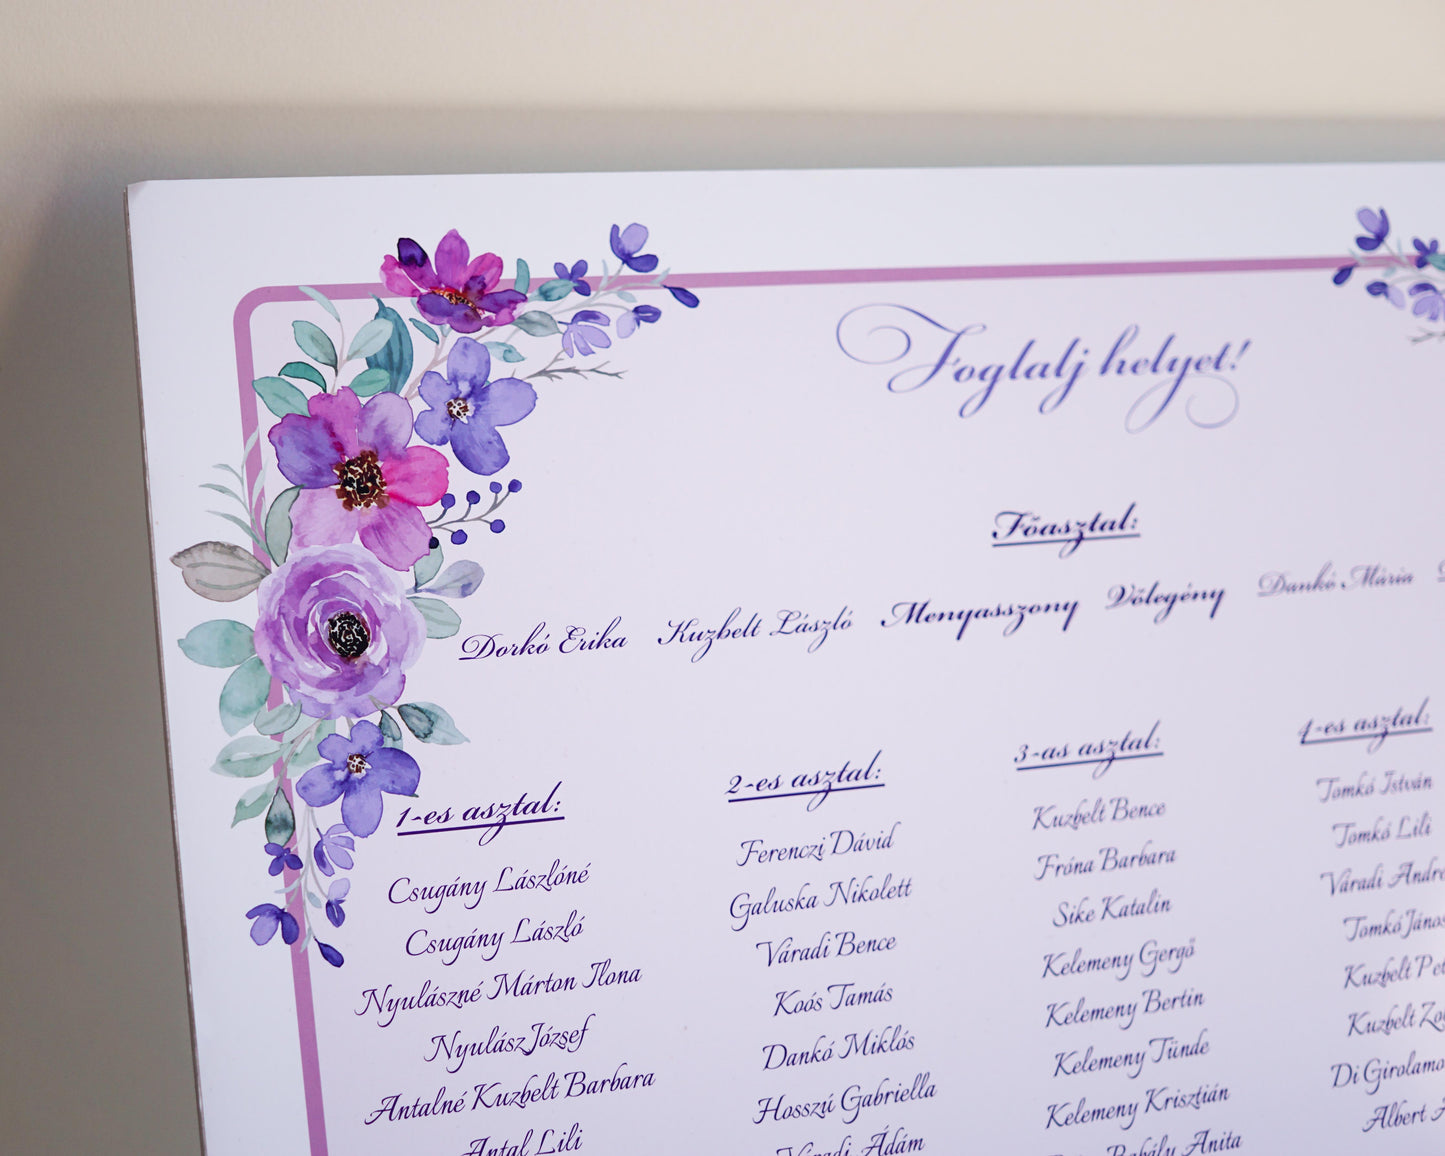 Foglalj helyet!
Főasztal:
Dorkó Erika Kuzbelt László Menyasszony Vőlegény Dankó Mária
1-es asztal:
Csugány Lászlóné
Csugány László
Nyulászné Márton Ilona
Nyulász József
Antalné Kuzbelt Barbara
Antal Lili
2-es asztal:
Ferenczi Dávid
Galuska Nikolett
Váradi Bence
Koós Tamás
Dankó Miklós
Hosszú Gabriella
Váradi Ádám
3-as asztal:
Kuzbelt Bence
Fróna Barbara
Sike Katalin
Kelemeny Gergő
Kelemeny Bertin
Kelemeny Tünde
Kelemeny Krisztián
Babály Anita
4-es asztal:
Tomkó István
Tomkó Lili
Váradi
Tomkó János
Kuzbelt
Kuzbelt
Di Girolamo
Albert